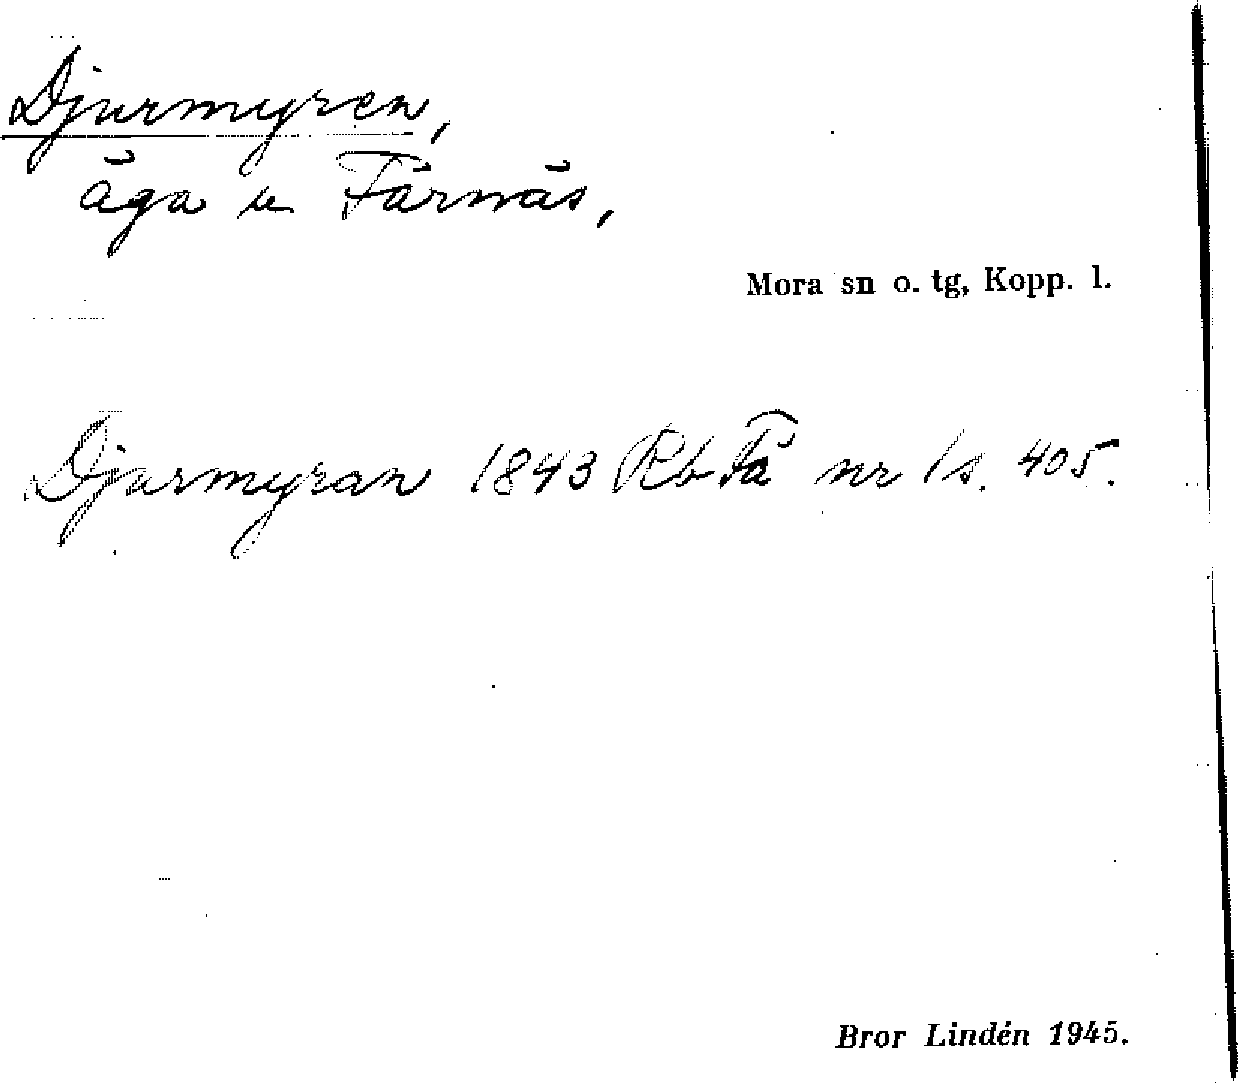 Djurmyren,
äga u Färnäs,
Mora sn o. tg, Kopp. l.
Djurmyran 1843 Rb Fä nr 1 s. 405.
Bror Lindén 1945.